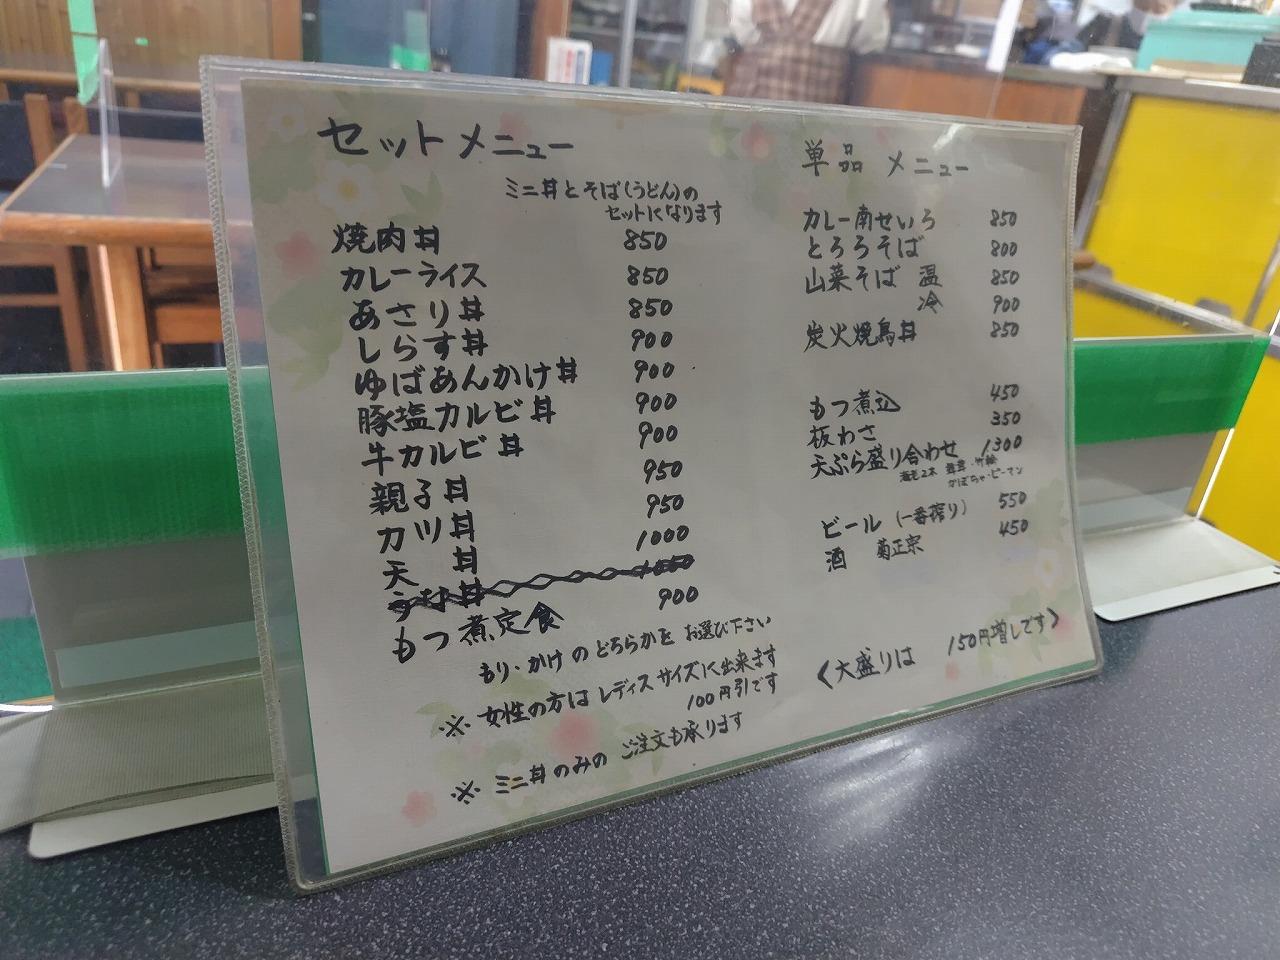 セットメニュー
ミニ丼とそば(うどん)の
セットになります
焼肉丼 850
カレーライス 850
あさり丼 850
しらす丼 900
ゆばあんかけ丼 900
豚塩カルビ丼 900
牛カルビ丼 900
親子丼 950
カツ丼 950
天 丼 1000
うな丼 1050
もつ煮定食 900
もり・かけのどちらかをお選び下さい
※女性の方はレディスサイズに出来ます
100円引です
※ミニ丼のみのご注文も承ります
単品 メニュー
カレー南せいろ 850
とろろそば 800
山菜そば 温 850
冷 900
炭火焼鳥丼 850
もつ煮込 450
板わさ 350
天ぷら盛り合わせ 1,300
海老2本
かぼちゃ・ピーマン
ビール (一番搾り) 550
酒 菊正宗 450
〈大盛りは 150円増しです〉